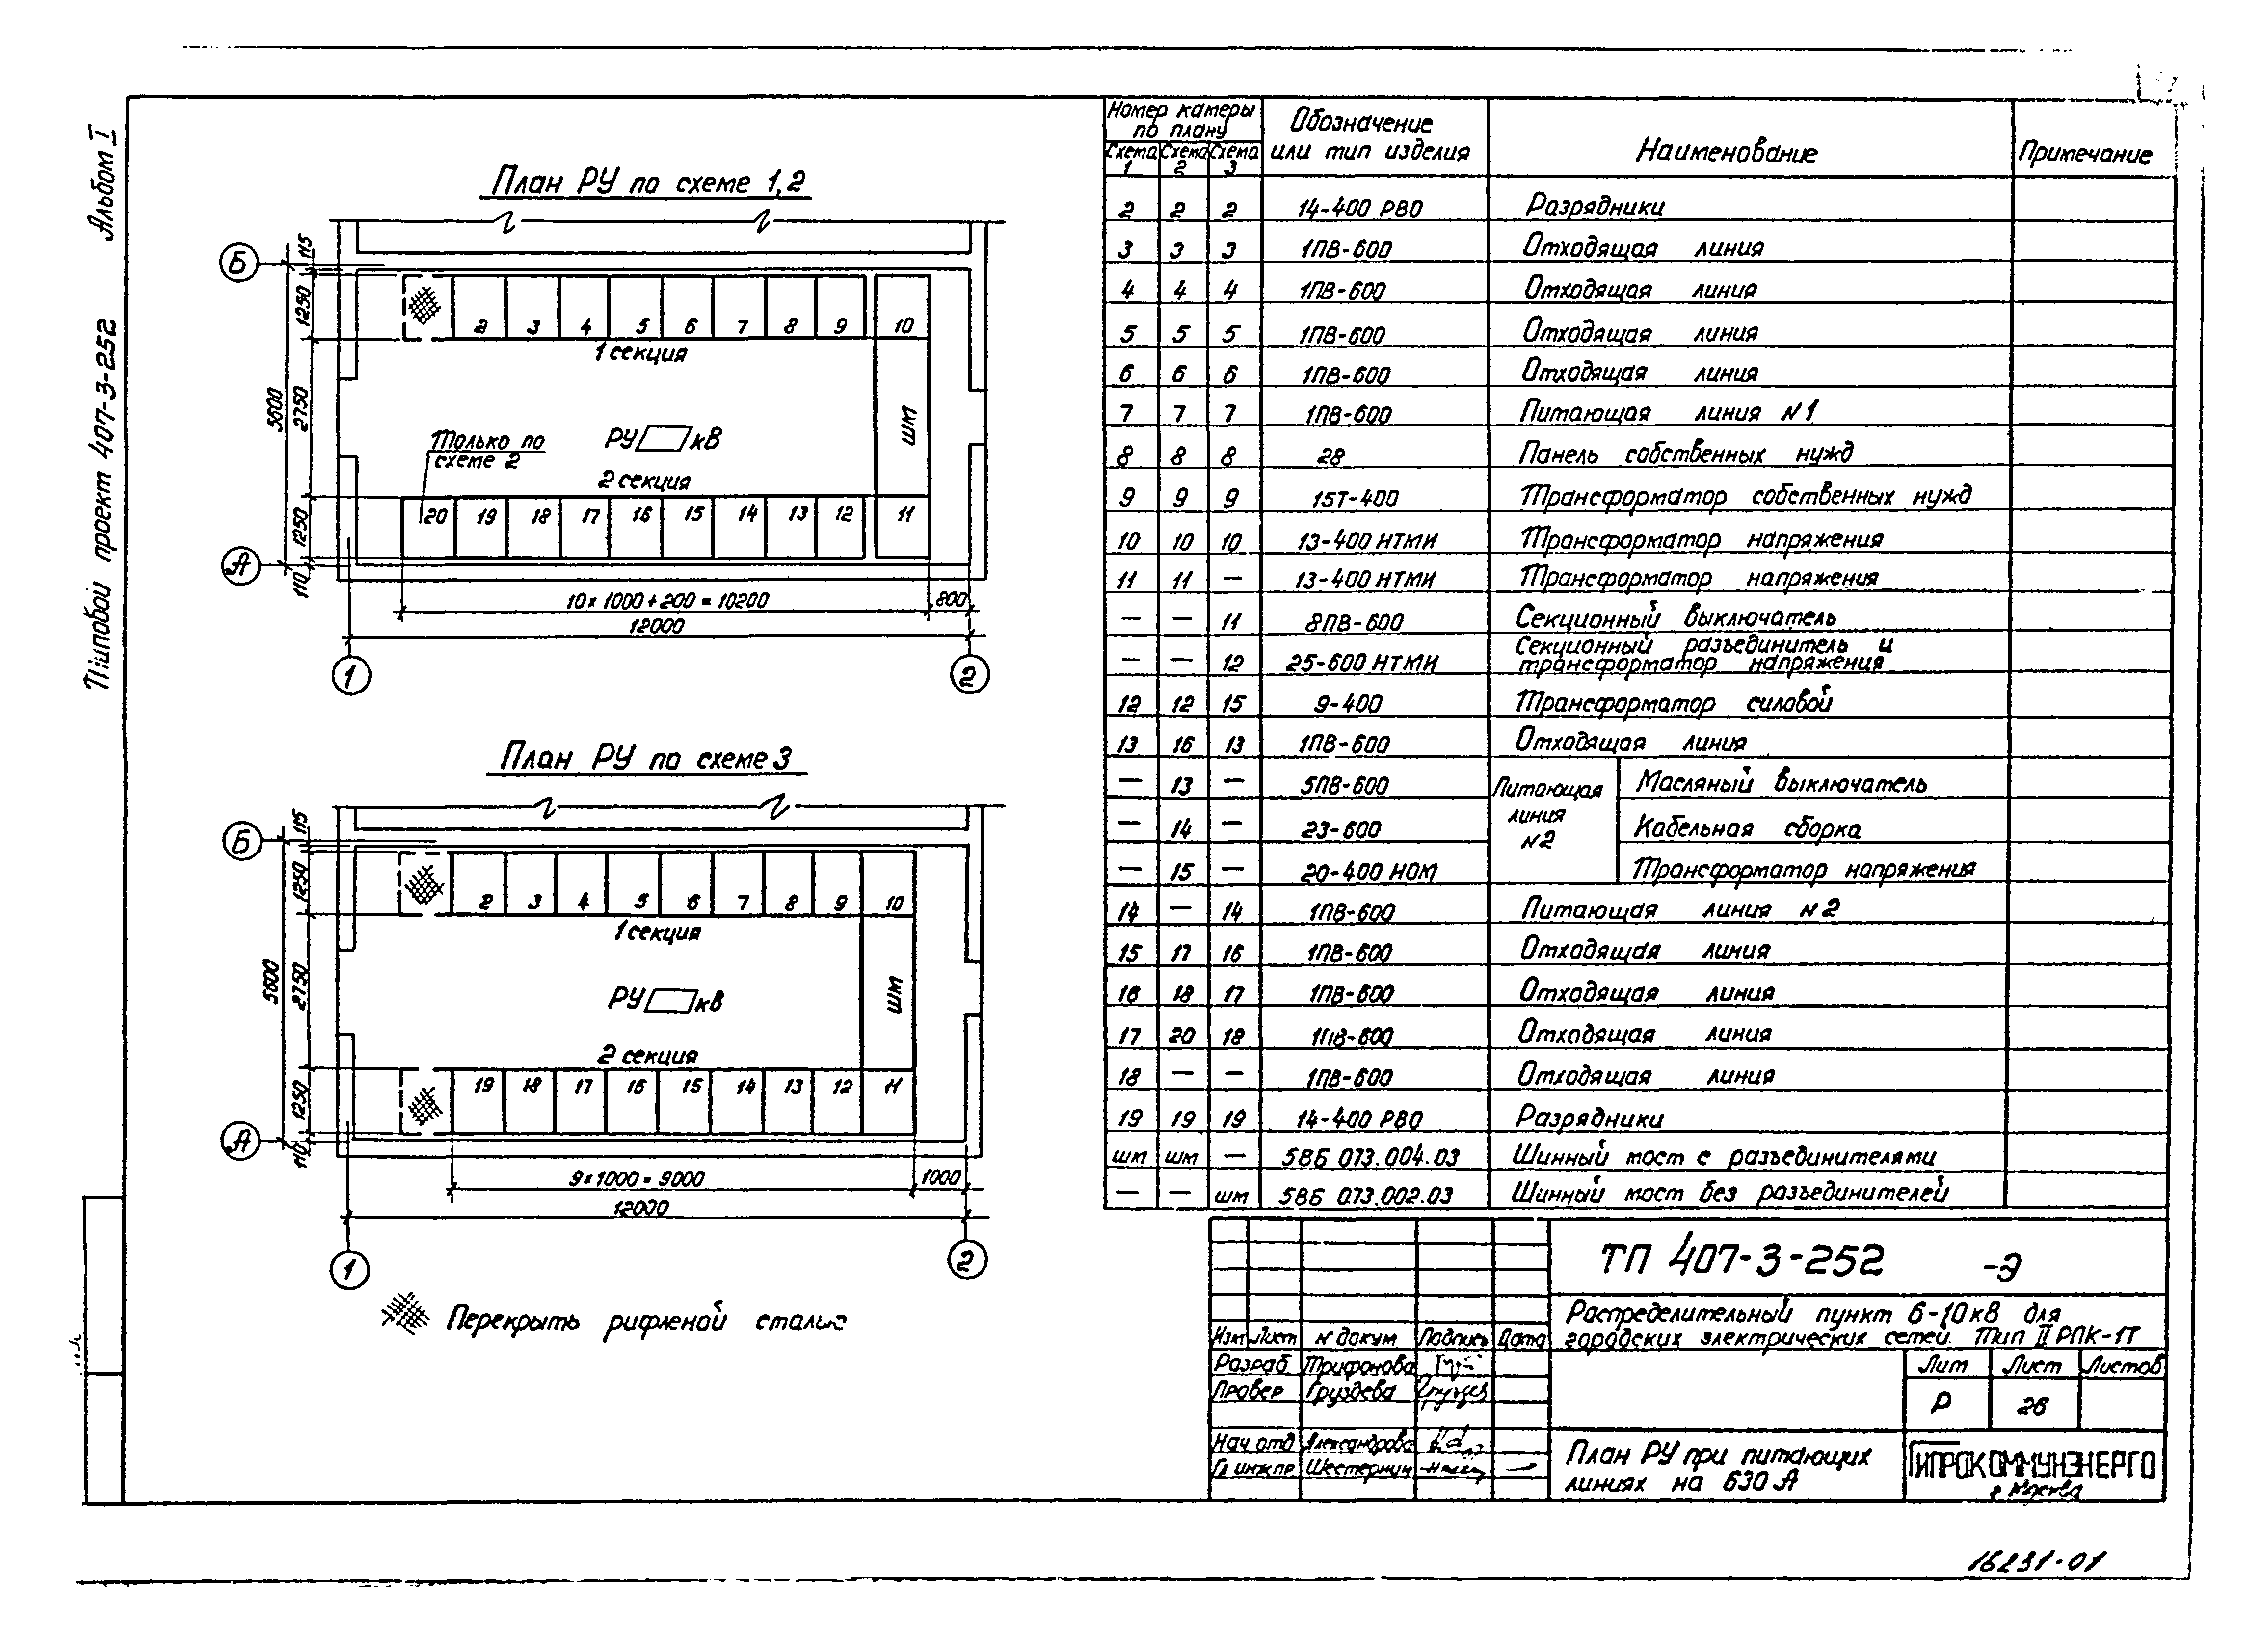 Альбом I
Типовой проект 407-3-252
План РУ по схеме 1,2
Б
115
1250
2750
5600
1250
110
А
2 3 4 5 6 7 8 9 10
1 секция
РУ кВ
шм
Только по
схеме 2
2 секция
20 19 18 17 16 15 14 13 12 11
10×1000+200=10200
800
12000
1
2
План РУ по схеме 3
Б
115
1250
2750
5600
1250
110
А
2 3 4 5 6 7 8 9 10
1 секция
РУ кВ
шм
2 секция
19 18 17 16 15 14 13 12 11
9×1000=9000
1000
12000
1
2
Перекрыть рифленой сталью
Номер камеры по плану | Обозначение или тип изделия | Наименование | Примечание
Схема 1 | Схема 2 | Схема 3
2 2 2 14-400 РВО Разрядники
3 3 3 1ПВ-600 Отходящая линия
4 4 4 1ПВ-600 Отходящая линия
5 5 5 1ПВ-600 Отходящая линия
6 6 6 1ПВ-600 Отходящая линия
7 7 7 1ПВ-600 Питающая линия N1
8 8 8 28 Панель собственных нужд
9 9 9 15Т-400 Трансформатор собственных нужд
10 10 10 13-400 НТМИ Трансформатор напряжения
11 11 — 13-400 НТМИ Трансформатор напряжения
— — 11 8ПВ-600 Секционный выключатель
— — 12 25-600 НТМИ Секционный разъединитель и трансформатор напряжения
12 12 15 9-400 Трансформатор силовой
13 16 13 1ПВ-600 Отходящая линия
— 13 — 5ПВ-600 Питающая линия N2 Масляный выключатель
— 14 — 23-600 Кабельная сборка
— 15 — 20-400 НОМ Трансформатор напряжения
14 — 14 1ПВ-600 Питающая линия N2
15 17 16 1ПВ-600 Отходящая линия
16 18 17 1ПВ-600 Отходящая линия
17 20 18 1ПВ-600 Отходящая линия
18 — — 1ПВ-600 Отходящая линия
19 19 19 14-400 РВО Разрядники
шм шм — 5ВБ 073.004.03 Шинный мост с разъединителями
— — шм 5ВБ 073.002.03 Шинный мост без разъединителей
ТП 407-3-252 -Э
Распределительный пункт 6-10кВ для
городских электрических сетей. Тип II РПК-1Т
Изм Лист N докум Подпись Дата
Разраб. Трифонова
Провер Груздева
Нач отд Александрова
Гл инж пр Шестернин
Лит Лист Листов
Р 26
План РУ при питающих
линиях на 630 А
ГИПРОКОММУНЭНЕРГО
г Москва
16231-01